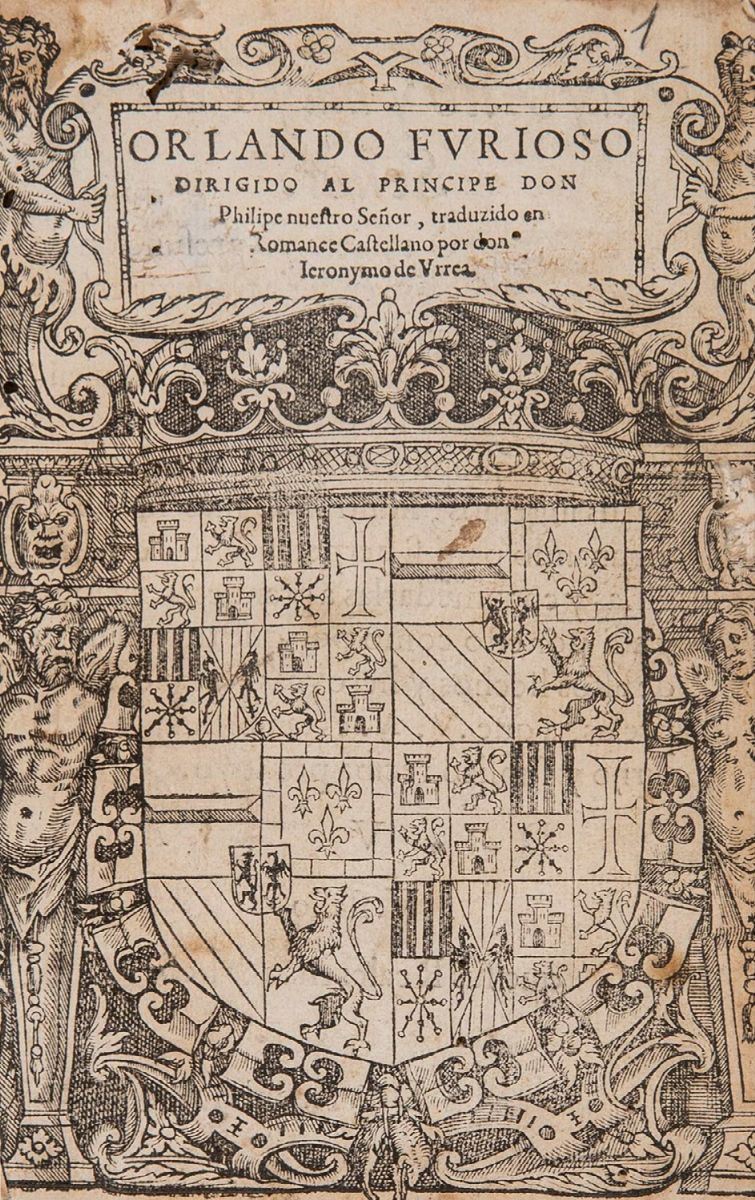 1
ORLANDO FVRIOSO
DIRIGIDO AL PRINCIPE DON
Philipe nueſtro Señor, traduzido en
Romance Caſtellano por don
Ieronymo de Vrrea